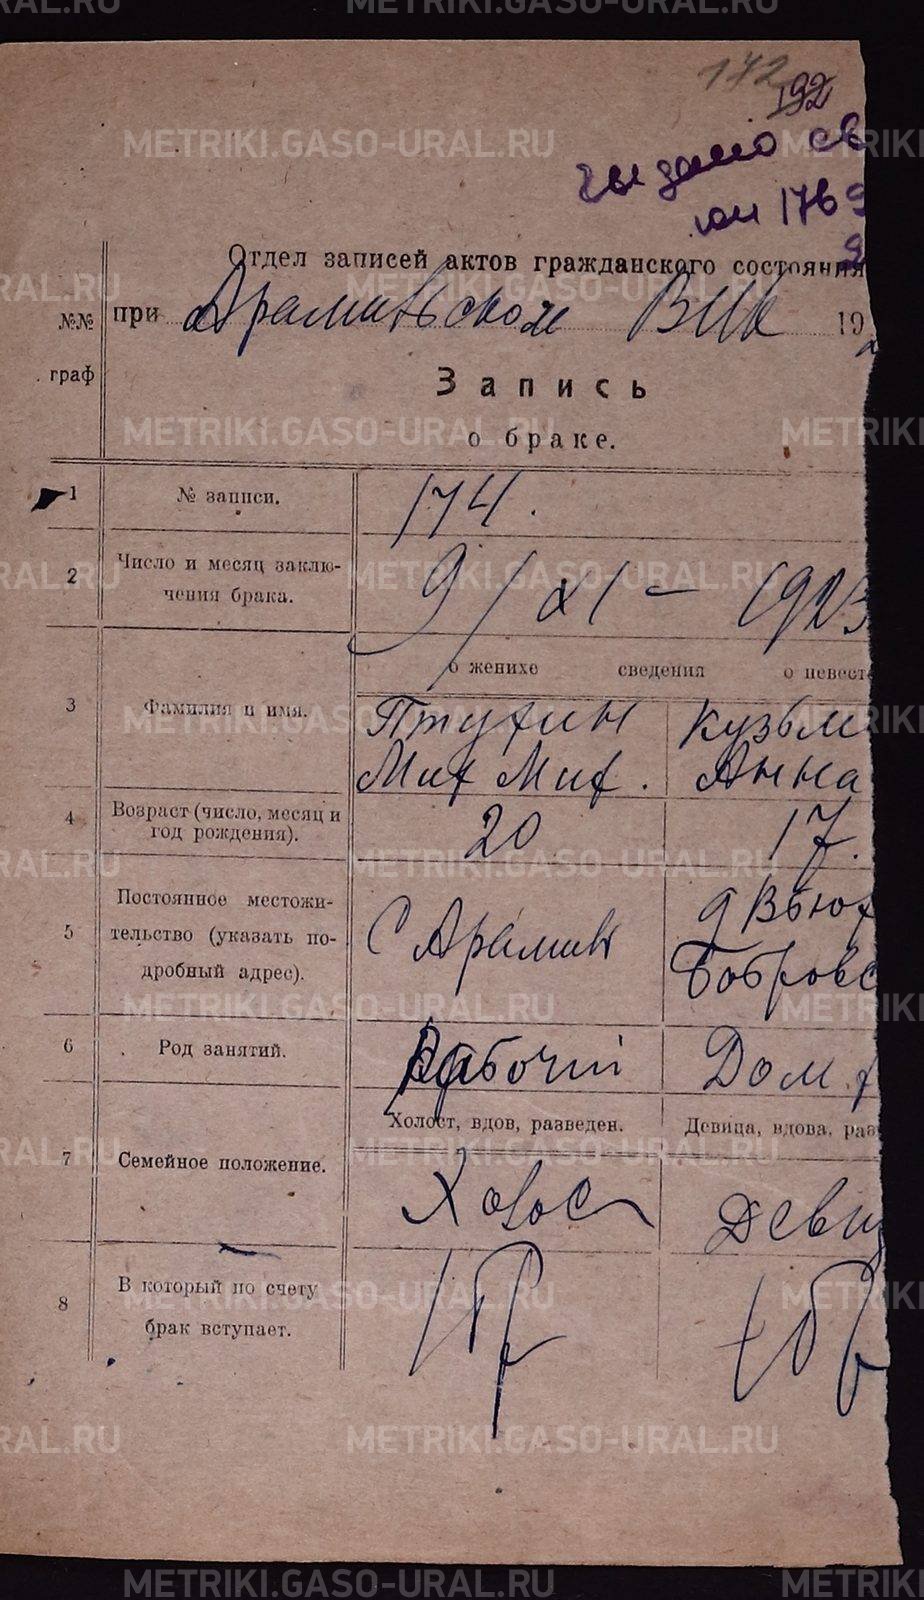 172
192
выдано св
юи 1769
Отдел записей актов гражданского состояния
№№ при Арамильском ВИК 192
граф
Запись
о браке.
1 № записи. 174.
2 Число и месяц заклю-
чения брака. 9/XI - 1923
о женихе сведения о невесте
3 Фамилия и имя. Птухин Кузьм
Мих Мих. Анна
4 Возраст (число, месяц и
год рождения). 20 17.
5 Постоянное местожи-
тельство (указать по-
дробный адрес). С Арамиль д Вьюх
Бобровс
6 Род занятий. Рабочий Дом. р
Холост, вдов, разведен. Девица, вдова, раз
7 Семейное положение. Холос Деви
8 В который по счету
брак вступает. 1 бр 1 бр
METRIKI.GASO-URAL.RU